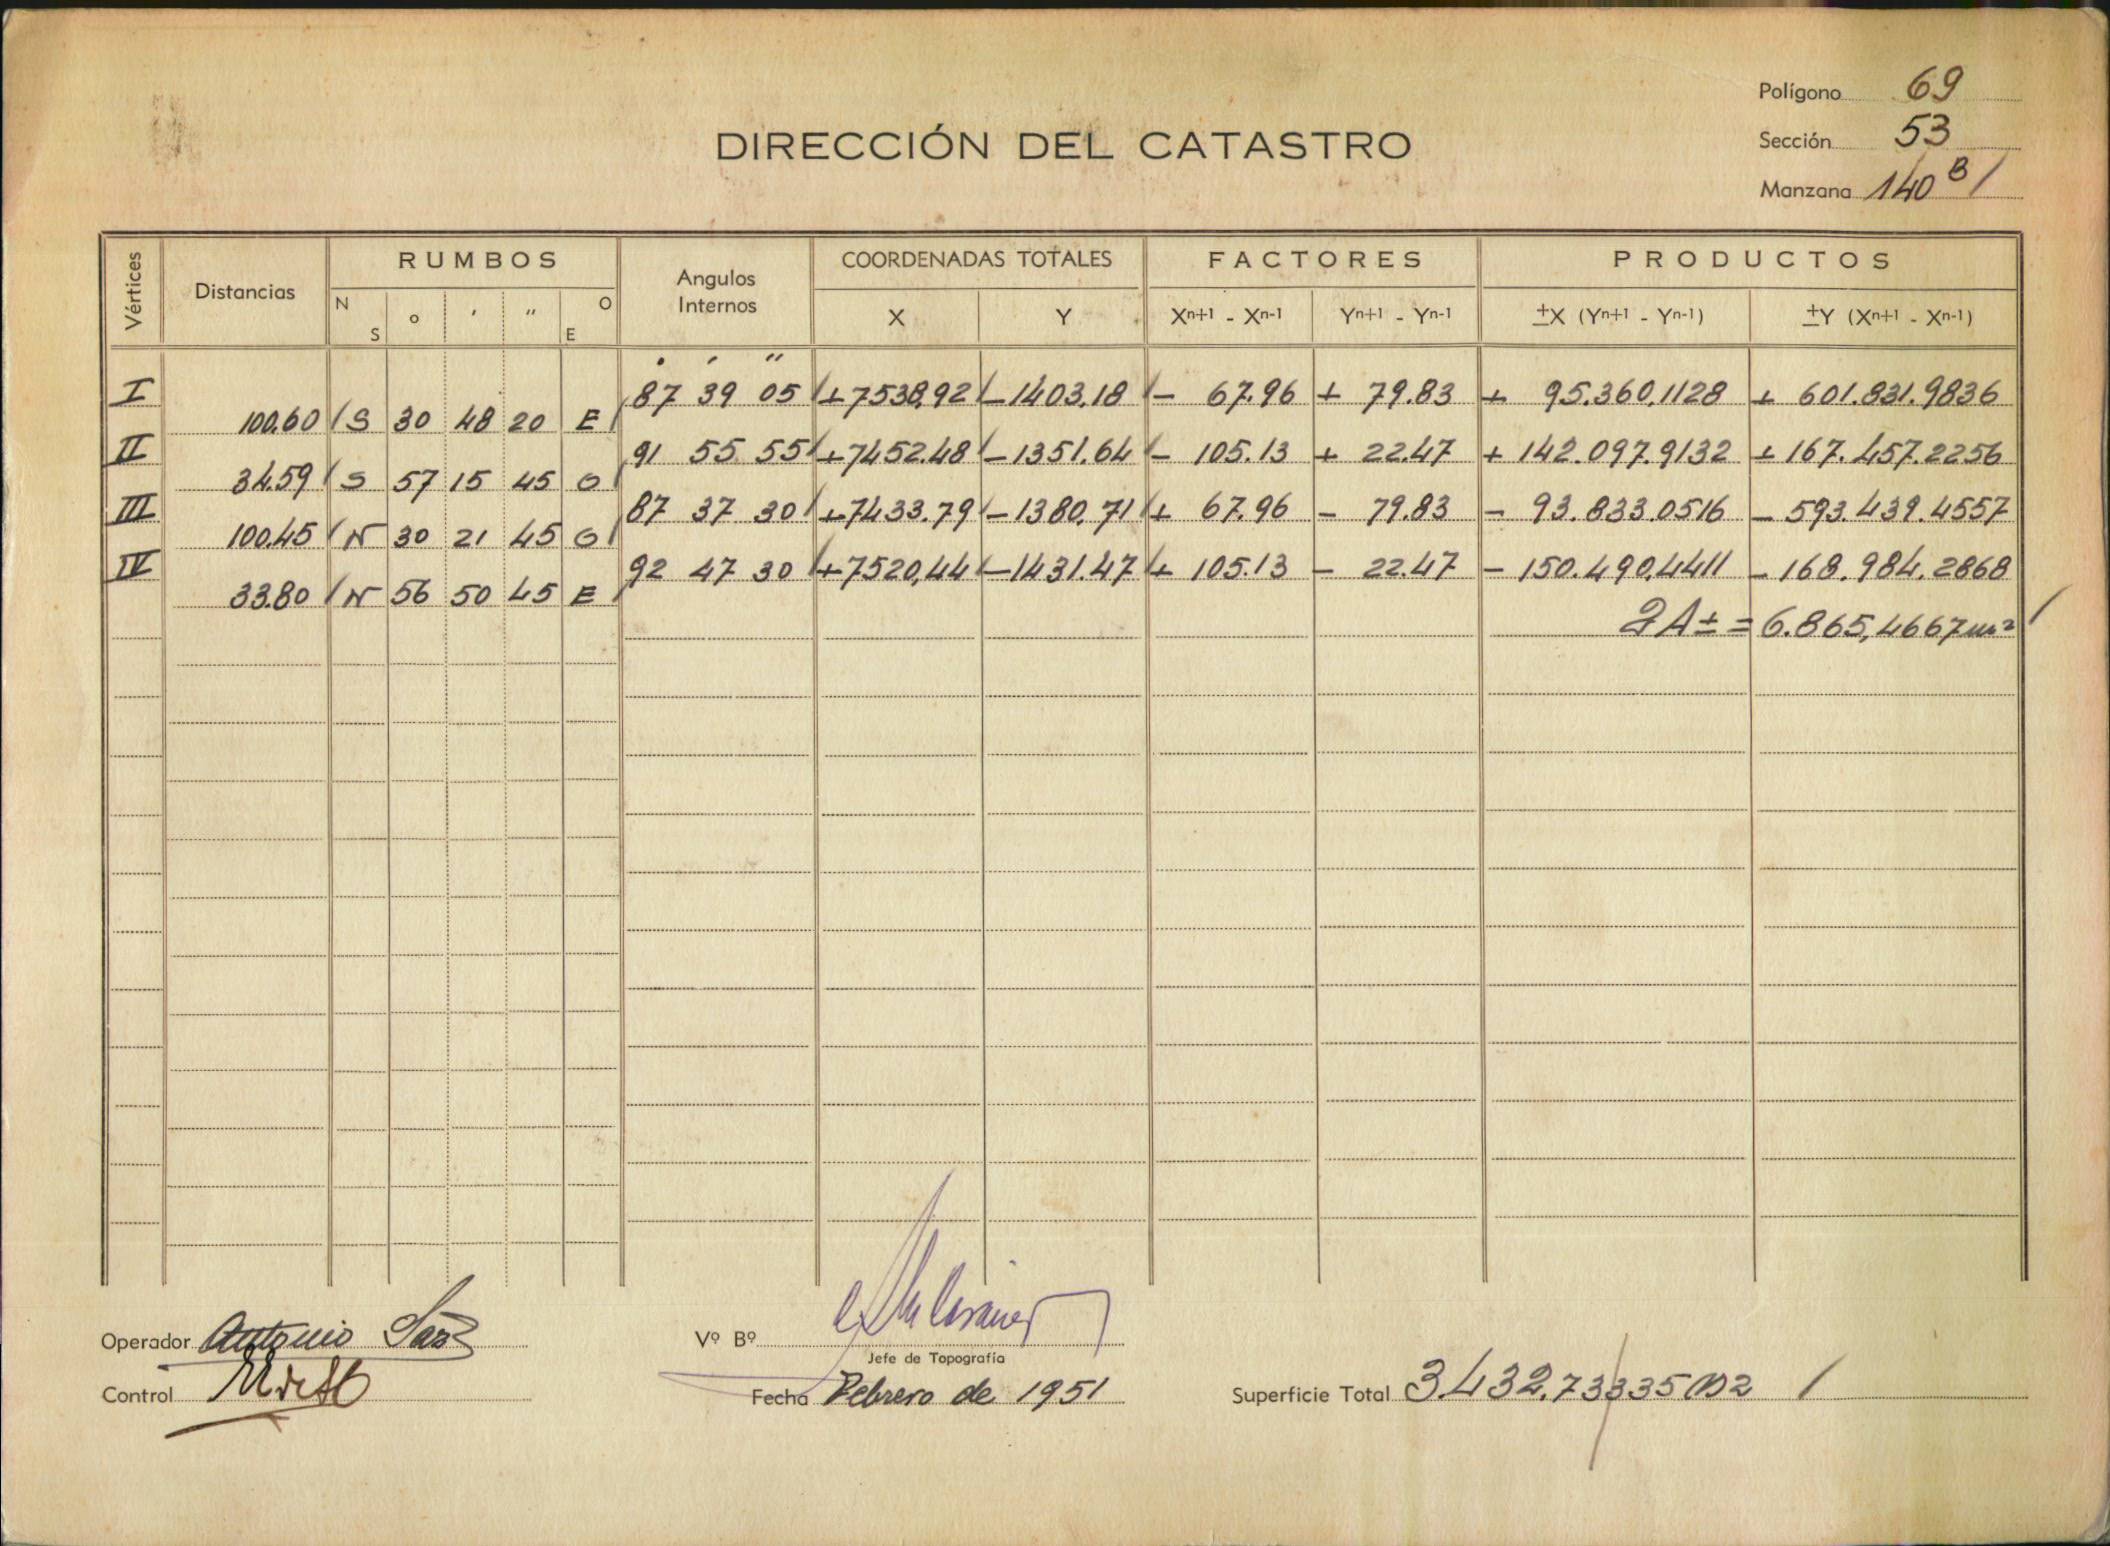 Polígono 69
DIRECCIÓN DEL CATASTRO
Sección 53
Manzana 140 B /
Vértices Distancias RUMBOS Angulos Internos COORDENADAS TOTALES FACTORES PRODUCTOS
N S o ' " O E X Y Xn+1 - Xn-1 Yn+1 - Yn-1 ±X (Yn+1 - Yn-1) ±Y (Xn+1 - Xn-1)
o ' "
I 87 39 05 +7538,92 -1403.18 - 67.96 + 79.83 + 95.360,1128 + 601.831.9836
100.60 S 30 48 20 E
II 91 55 55 +7452.48 -1351.64 - 105.13 + 22.47 + 142.097.9132 + 167.457.2256
34.59 S 57 15 45 O
III 87 37 30 +7433.79 -1380.71 + 67.96 - 79.83 - 93.833.0516 - 593.439.4557
100.45 N 30 21 45 O
IV 92 47 30 +7520,44 -1431.47 + 105.13 - 22.47 - 150.490,4411 - 168.984.2868
33.80 N 56 50 45 E
2A± = 6.865,4667 m²
Operador Antonio
Vº Bº
Jefe de Topografía
Control
Fecha Febrero de 1951
Superficie Total 3.432.73335 m2